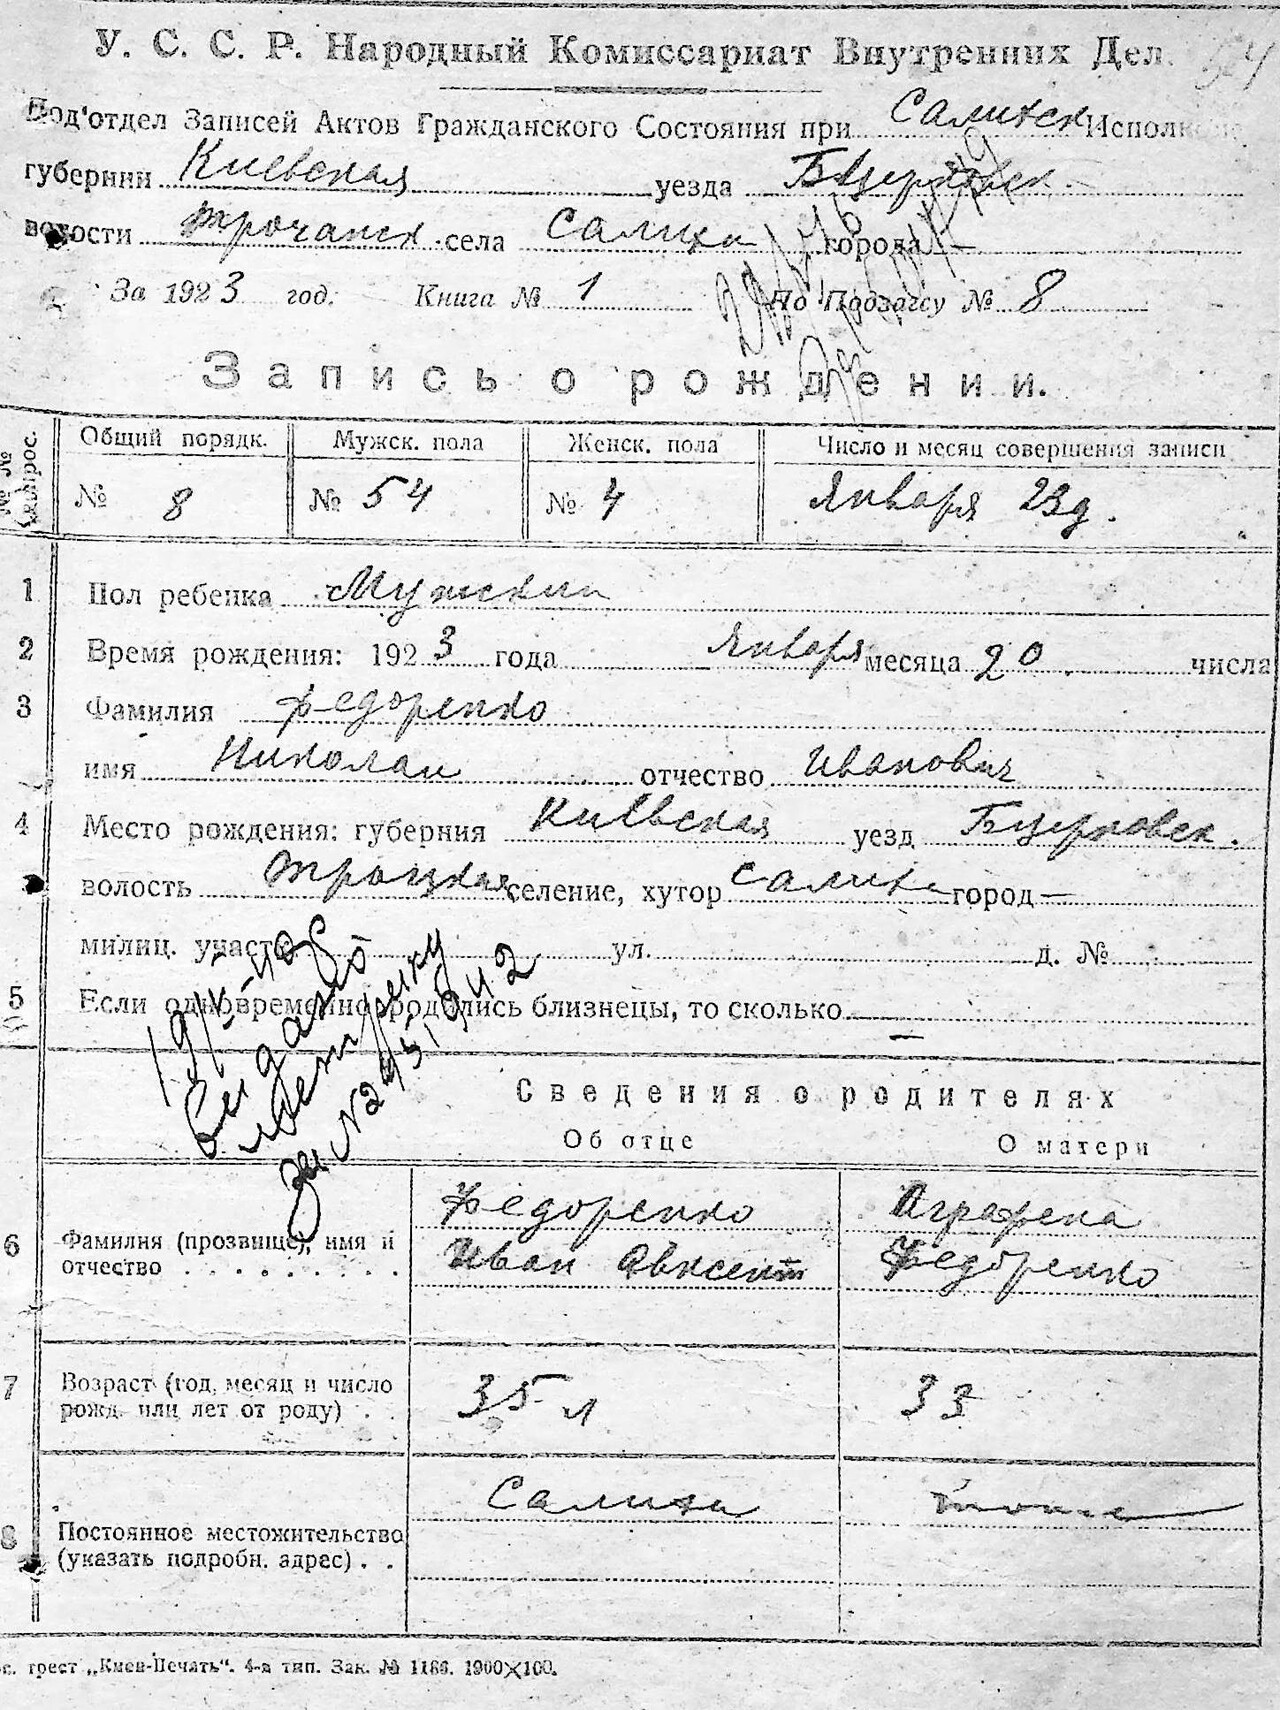 54
У. С. С. Р. Народный Комиссариат Внутренних Дел.
Под'отдел Записей Актов Гражданского Состояния при Салихск Исполкоме
губернии Киевская уезда Бцерковск.
волости Трочанск села Салиха города —
За 1923 год. Книга № 1 По Подзагсу № 8
Запись о рождении.
№ № вопрос. Общий порядк. Мужск. пола Женск. пола Число и месяц совершения записи
№ 8 № 54 № 4 Января 23д.
1 Пол ребенка Мужскии
2 Время рождения: 1923 года Января месяца 20 числа
3 Фамилия Федоренко
имя Николаи отчество Иванович
4 Место рождения: губерния Киевская уезд Бцерковск.
волость Троцкая селение, хутор Салиха город —
милиц. участ ул. д. №
5 Если одновременно родились близнецы, то сколько —
19/X-40
видано
метрику
за № 245194
Сведения о родителях
Об отце О матери
6 Фамилия (прозвище), имя и отчество Федоренко Аграфена
Иван Авксент Федоренко
7 Возраст (год, месяц и число рожд. или лет от роду) 35 л 33
8 Постоянное местожительство (указать подробн. адрес) Салиха тоже
трест „Киев-Печать“. 4-я тип. Зак. № 1166. 1900×100.